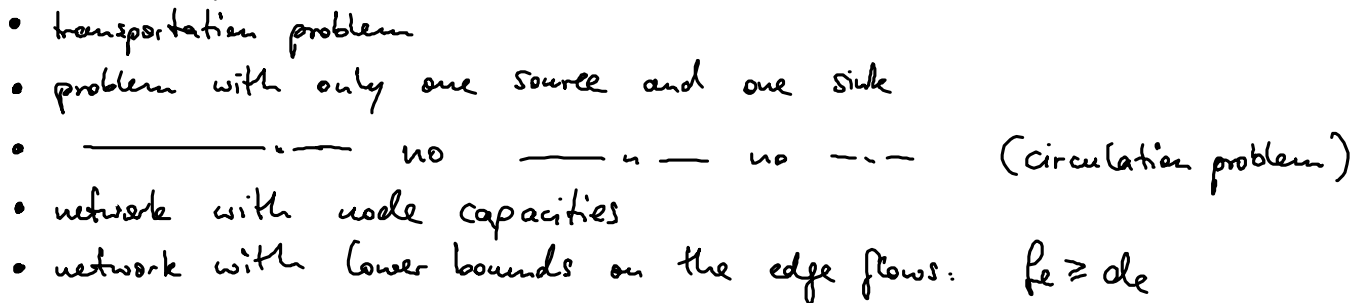 • transportation problem
• problem with only one source and one sink
• ———·— no ——"— no —·— (circulation problem)
• network with node capacities
• network with lower bounds on the edge flows: fe ≥ de